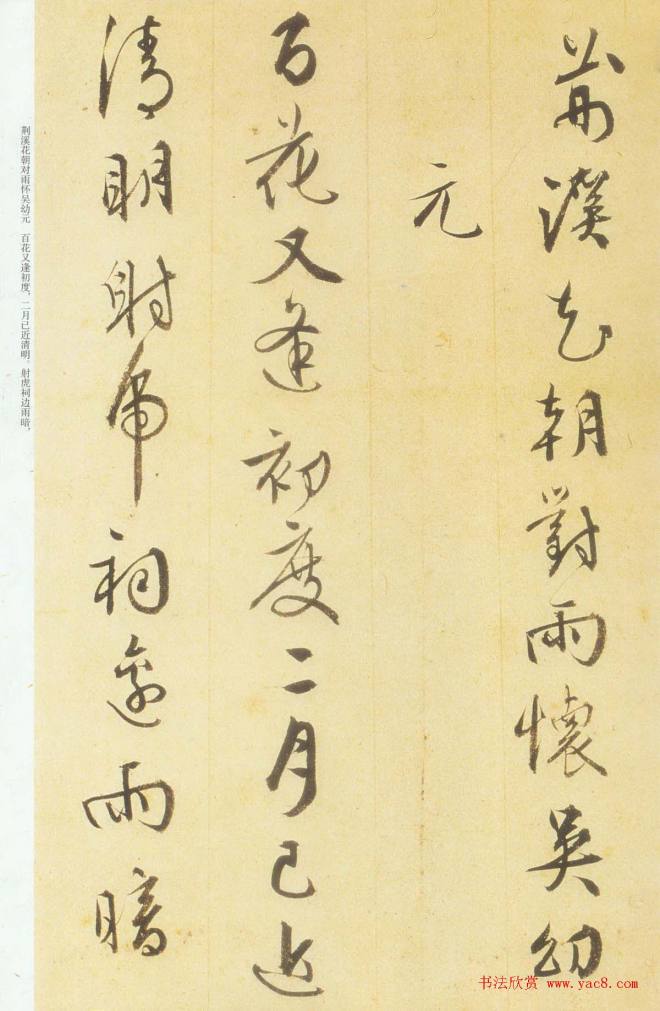 荊溪花朝對雨懷吳幼
元
百花又逢初度二月已近
清明射虎祠邊雨暗
荆溪花朝对雨怀吴幼元 百花又逢初度，二月已近清明。射虎祠边雨暗，
书法欣赏 www.yac8.com